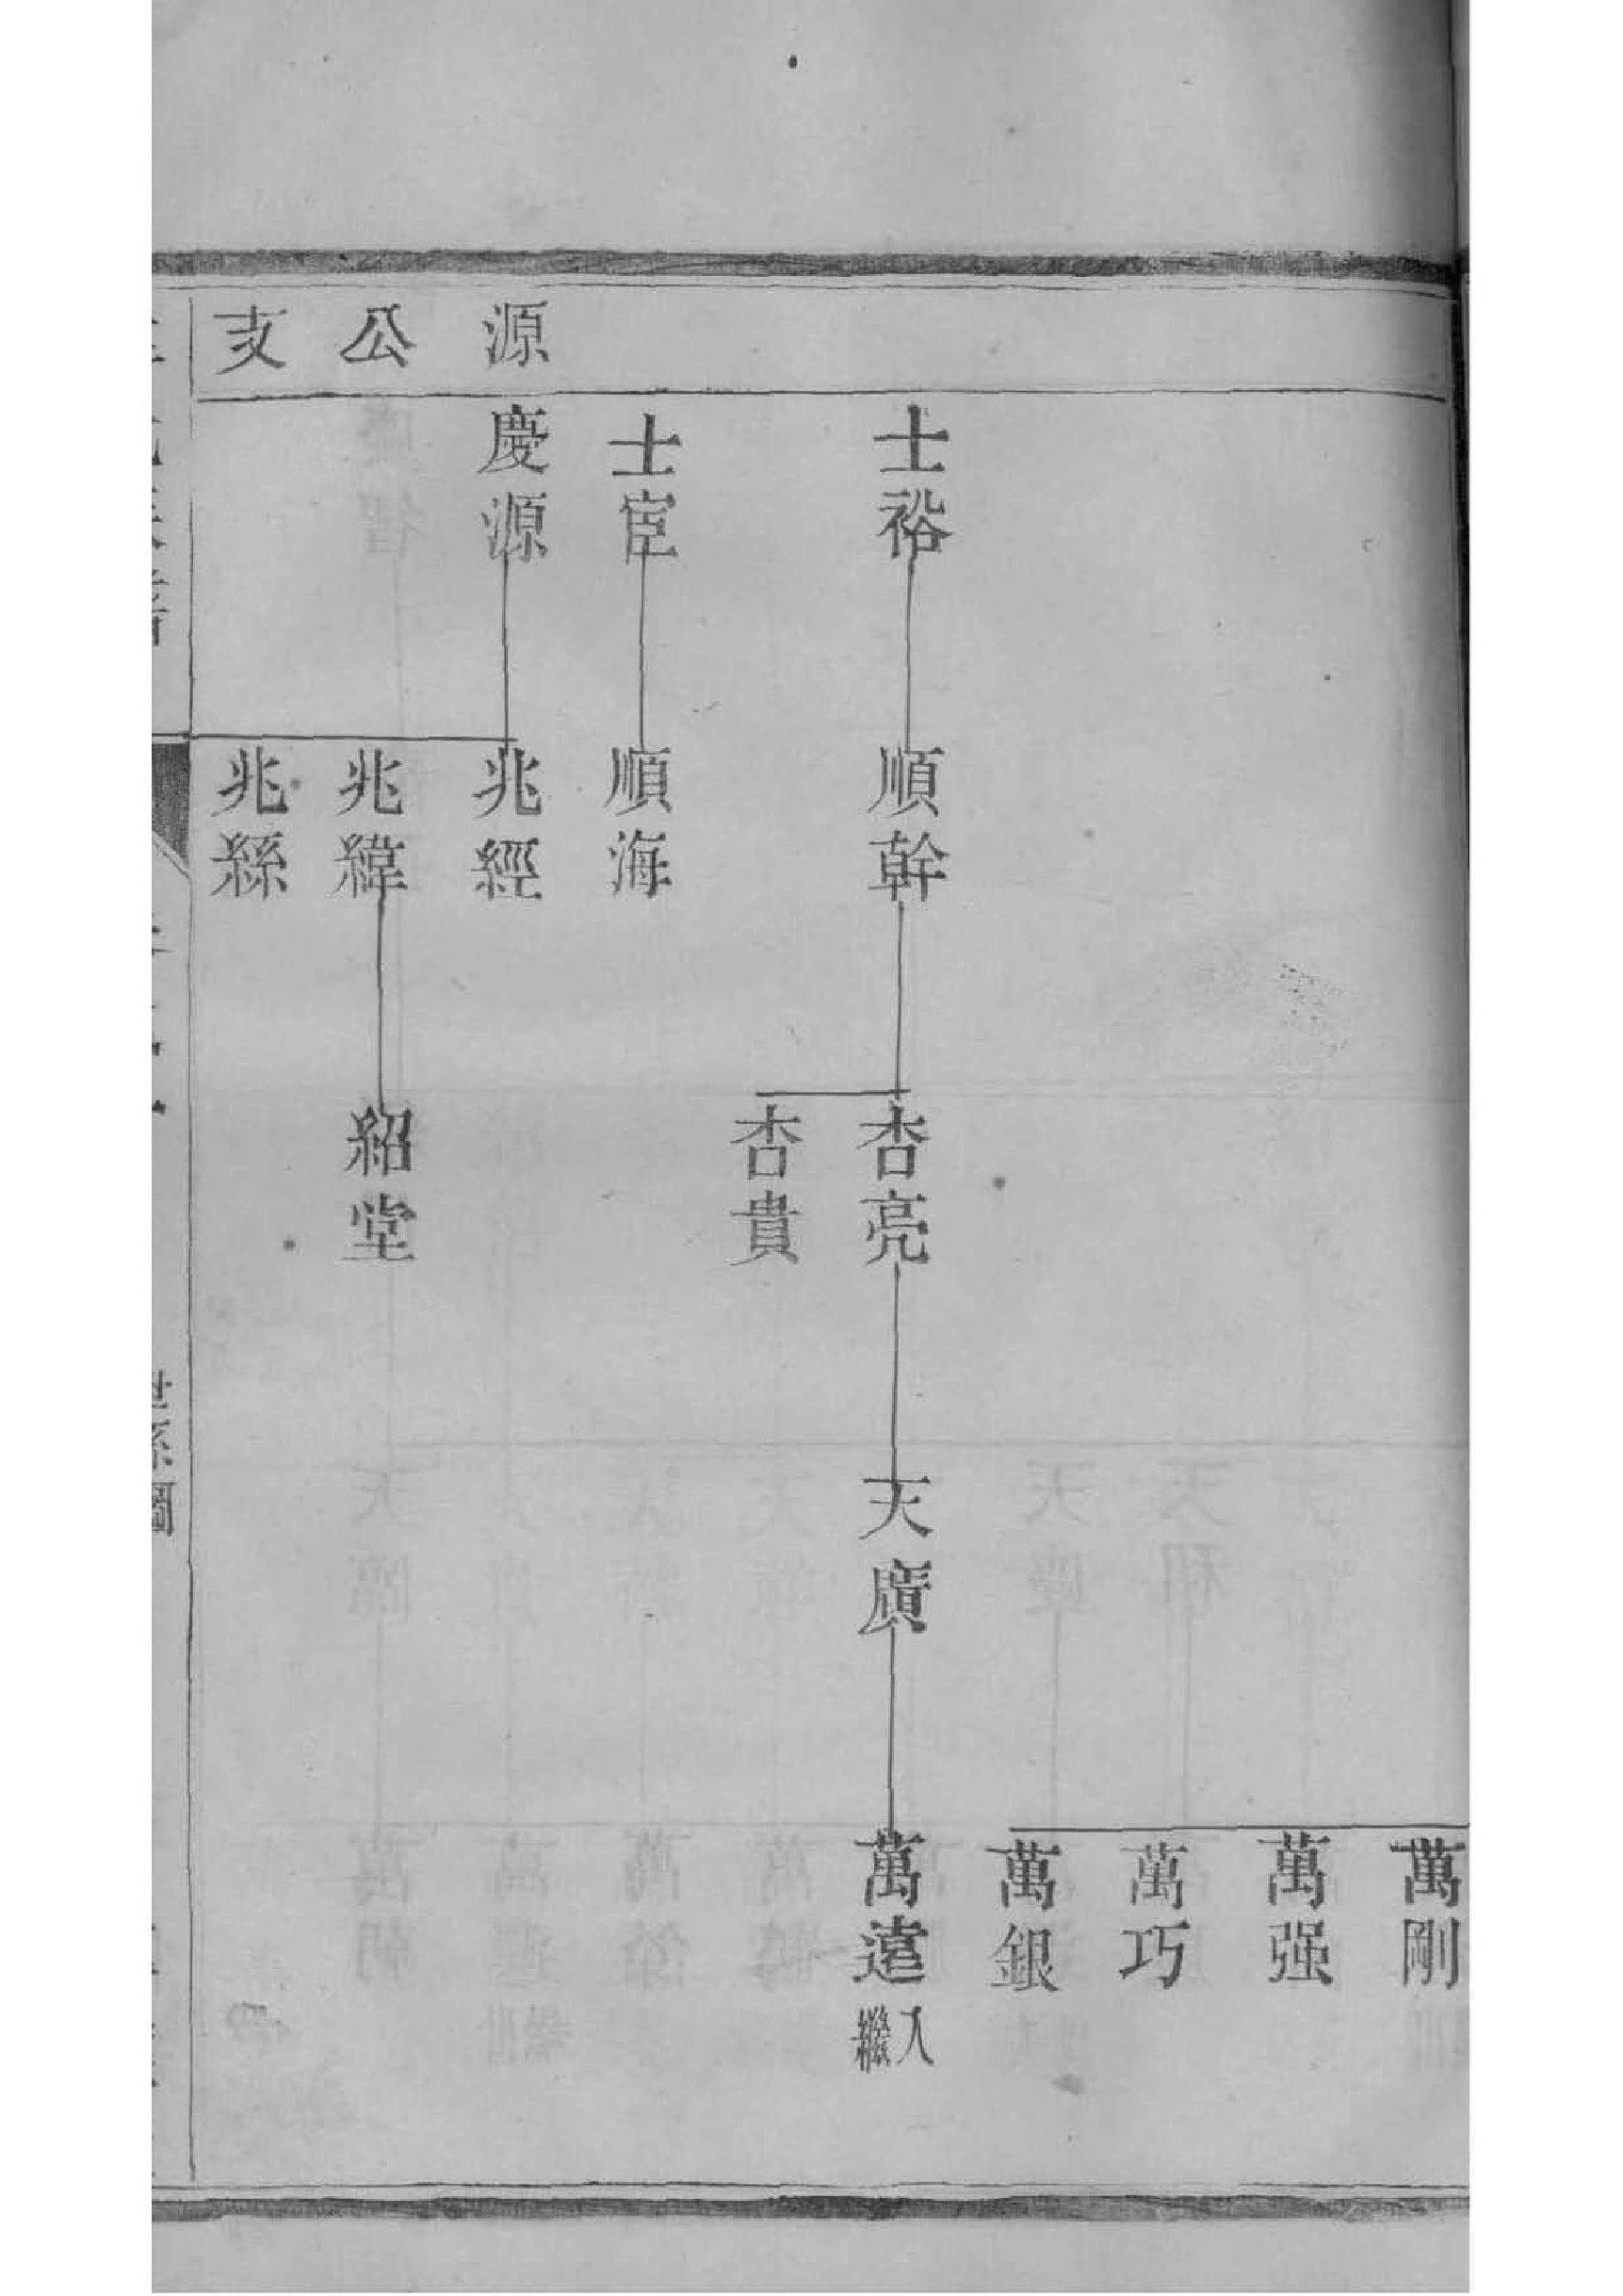 源公支
士裕
士宦
慶源
順幹
順海
兆經
兆緯
兆絲
杏亮
杏貴
紹堂
天廣
萬剛
萬强
萬巧
萬銀
萬遠
入繼
世系圖